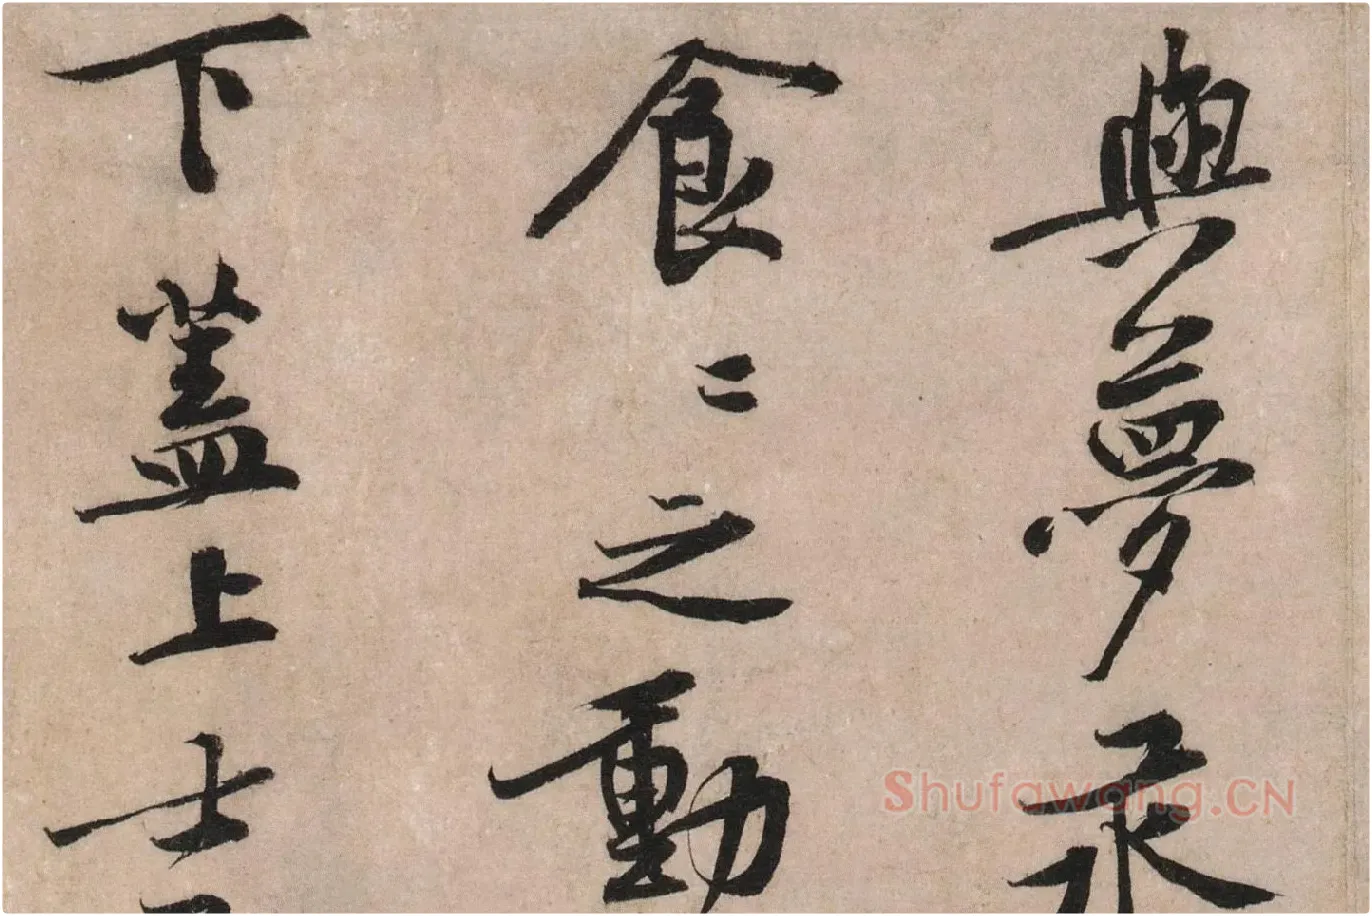 與夢
食〻之動
下蓋上士
Shufawang.CN